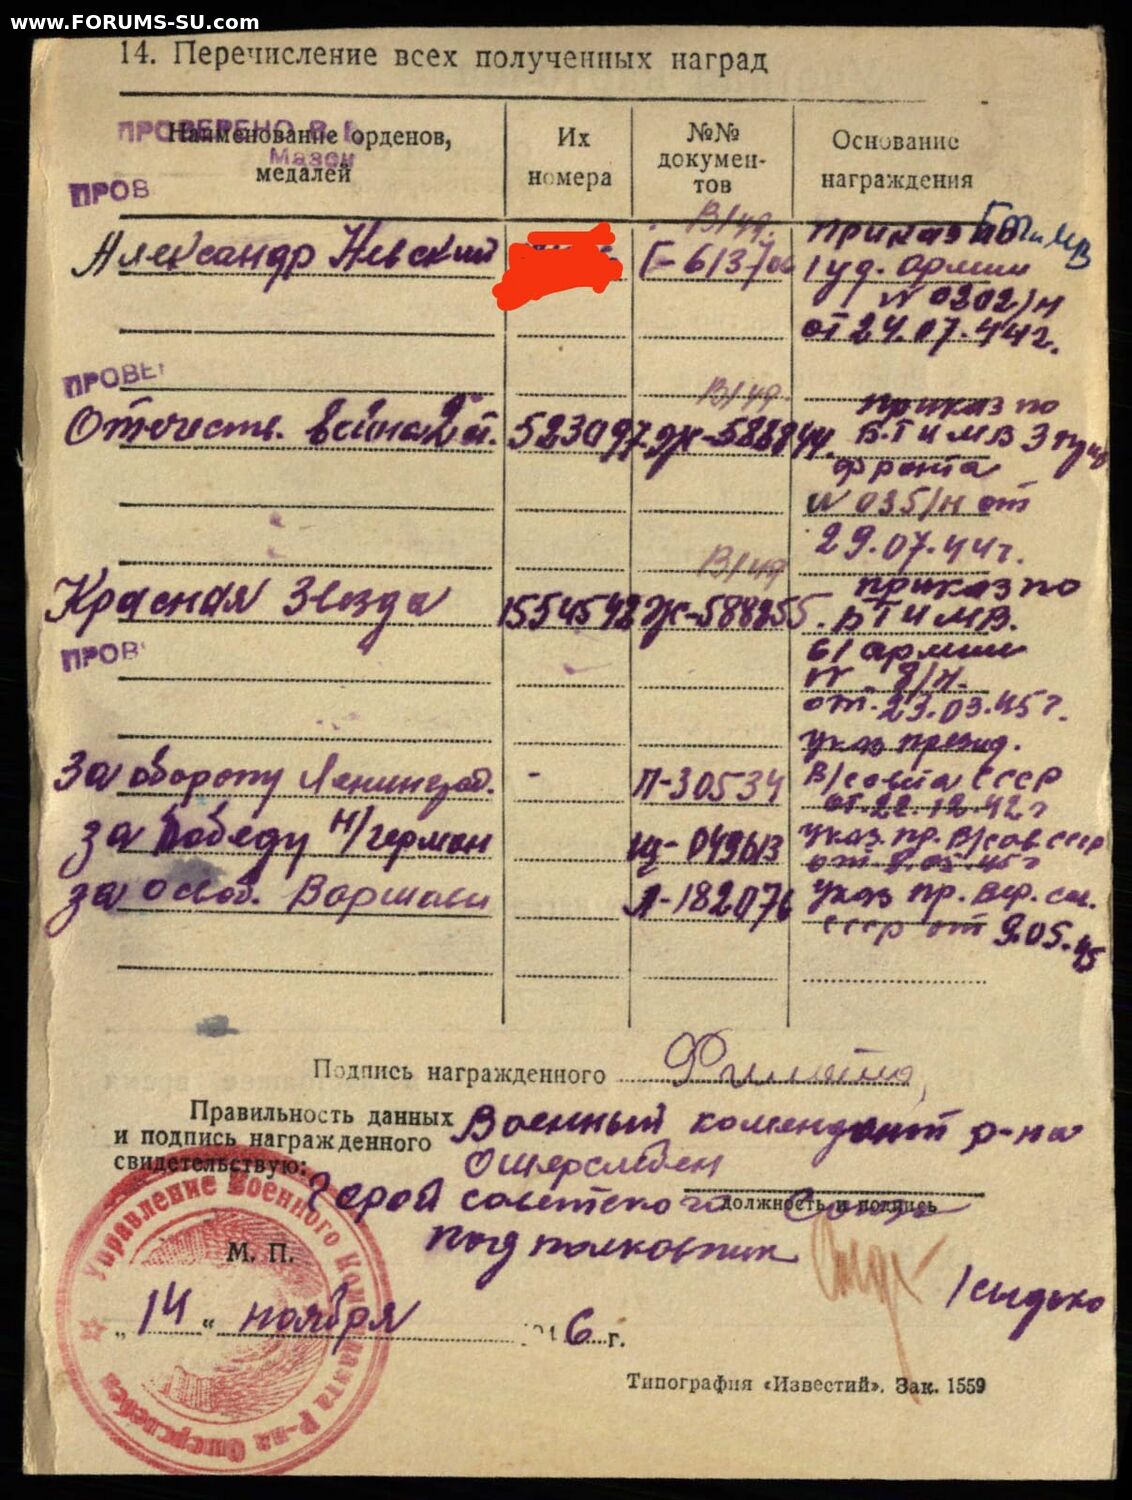 www.FORUMS-SU.com
14. Перечисление всех полученных наград
ПРОВЕРЕНО
Наименование орденов, медалей
Их номера
№№ докумен-тов
Основание награждения
ПРОВ
Александр Невский
В/уд.
Г-613706
приказ по
1 уд. армии
№ 0302/н
от 24.07.44г.
БТ и МВ
ПРОВЕ
Отечеств. войны 2 ст.
523097
В/уд.
Ж-588844.
приказ по
БТ и МВ 3 приб
фронта
№ 035/н от
29.07.44г.
Красная Звезда
1554542
В/уд
Ж-588255.
приказ по
БТ и МВ.
61 армии
№ 8/н.
от 23.03.45г.
ПРОВ
За оборону Ленинград.
-
Л-30534
указ презид.
В/совета СССР
от 22.12.42г
за победу н/герман
Щ-049613
указ пр. В/сов СССР
от 9.05.45г
за освоб. Варшавы
А-182076
указ пр. Вер. сов.
СССР от 9.05.45
Подпись награжденного
Правильность данных
и подпись награжденного
свидетельствую:
Военный комендант р-на
Ошерслебен
Герой советского Союза
должность и подпись
подполковник
/Сидько
М. П.
„ 14 “ ноября 6 г.
Управление Военного Коменданта Р-на Ошерслебен
Типография «Известий». Зак. 1559